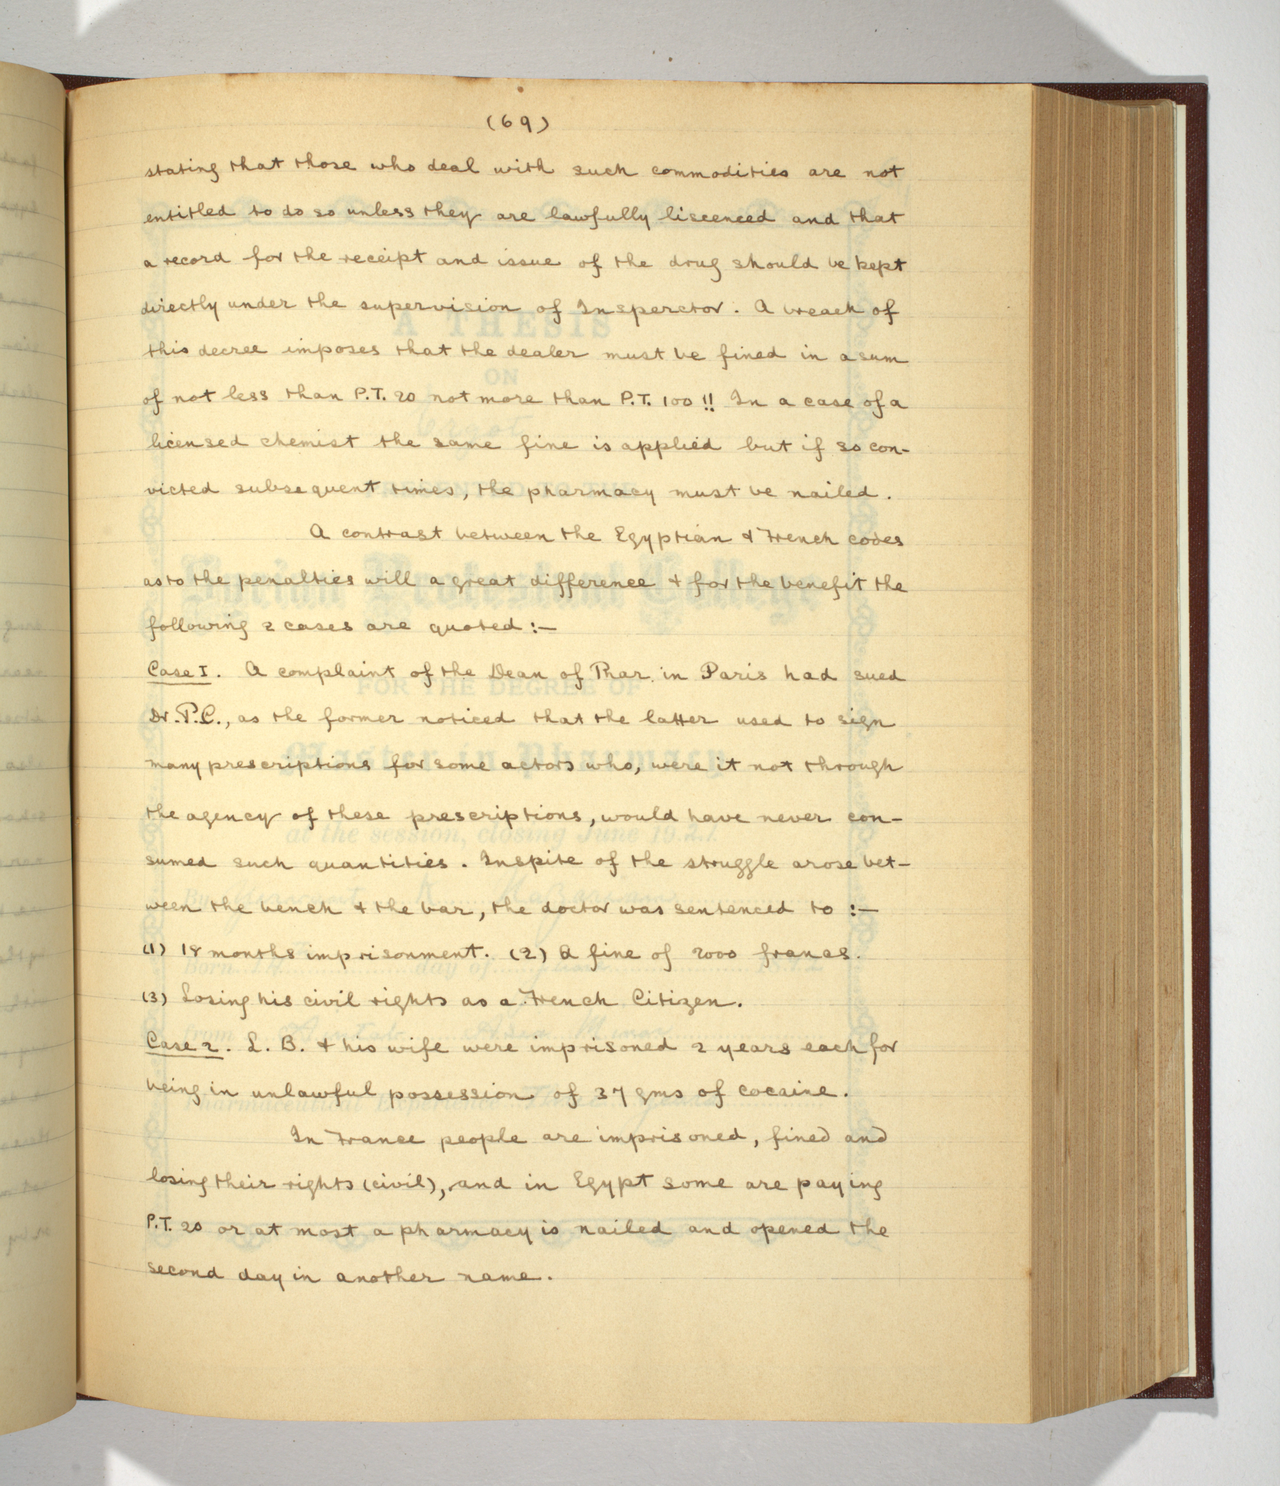 (69)
stating that those who deal with such commodities are not
entitled to do so unless they are lawfully liscenced and that
a record for the receipt and issue of the drug should be kept
directly under the supervision of Insperctor. A breach of
this decree imposes that the dealer must be fined in a sum
of not less than P.T. 20 not more than P.T. 100 !! In a case of a
licensed chemist the same fine is applied but if so con-
victed subsequent times, the pharmacy must be nailed.
A contrast between the Egyptian & French codes
as to the penalties will a great difference & for the benefit the
following 2 cases are quoted :-
Case I. A complaint of the Dean of Phar. in Paris had sued
Dr. P.C., as the former noticed that the latter used to sign
many prescriptions for some actors who, were it not through
the agency of these prescriptions, would have never con-
sumed such quantities. Inspite of the struggle arose bet-
ween the bench & the bar, the doctor was sentenced to :-
(1) 18 months imprisonment. (2) A fine of 2000 francs.
(3) Losing his civil rights as a French Citizen.
Case 2. L. B. & his wife were imprisoned 2 years each for
being in unlawful possession of 37 gms of cocaine.
In France people are imprisoned, fined and
losing their rights (civil), and in Egypt some are paying
P.T. 20 or at most a pharmacy is nailed and opened the
second day in another name.
A THESIS
ON
Syrian Protestant College
FOR THE DEGREE OF
Master in Pharmacy
at the session, closing June 192